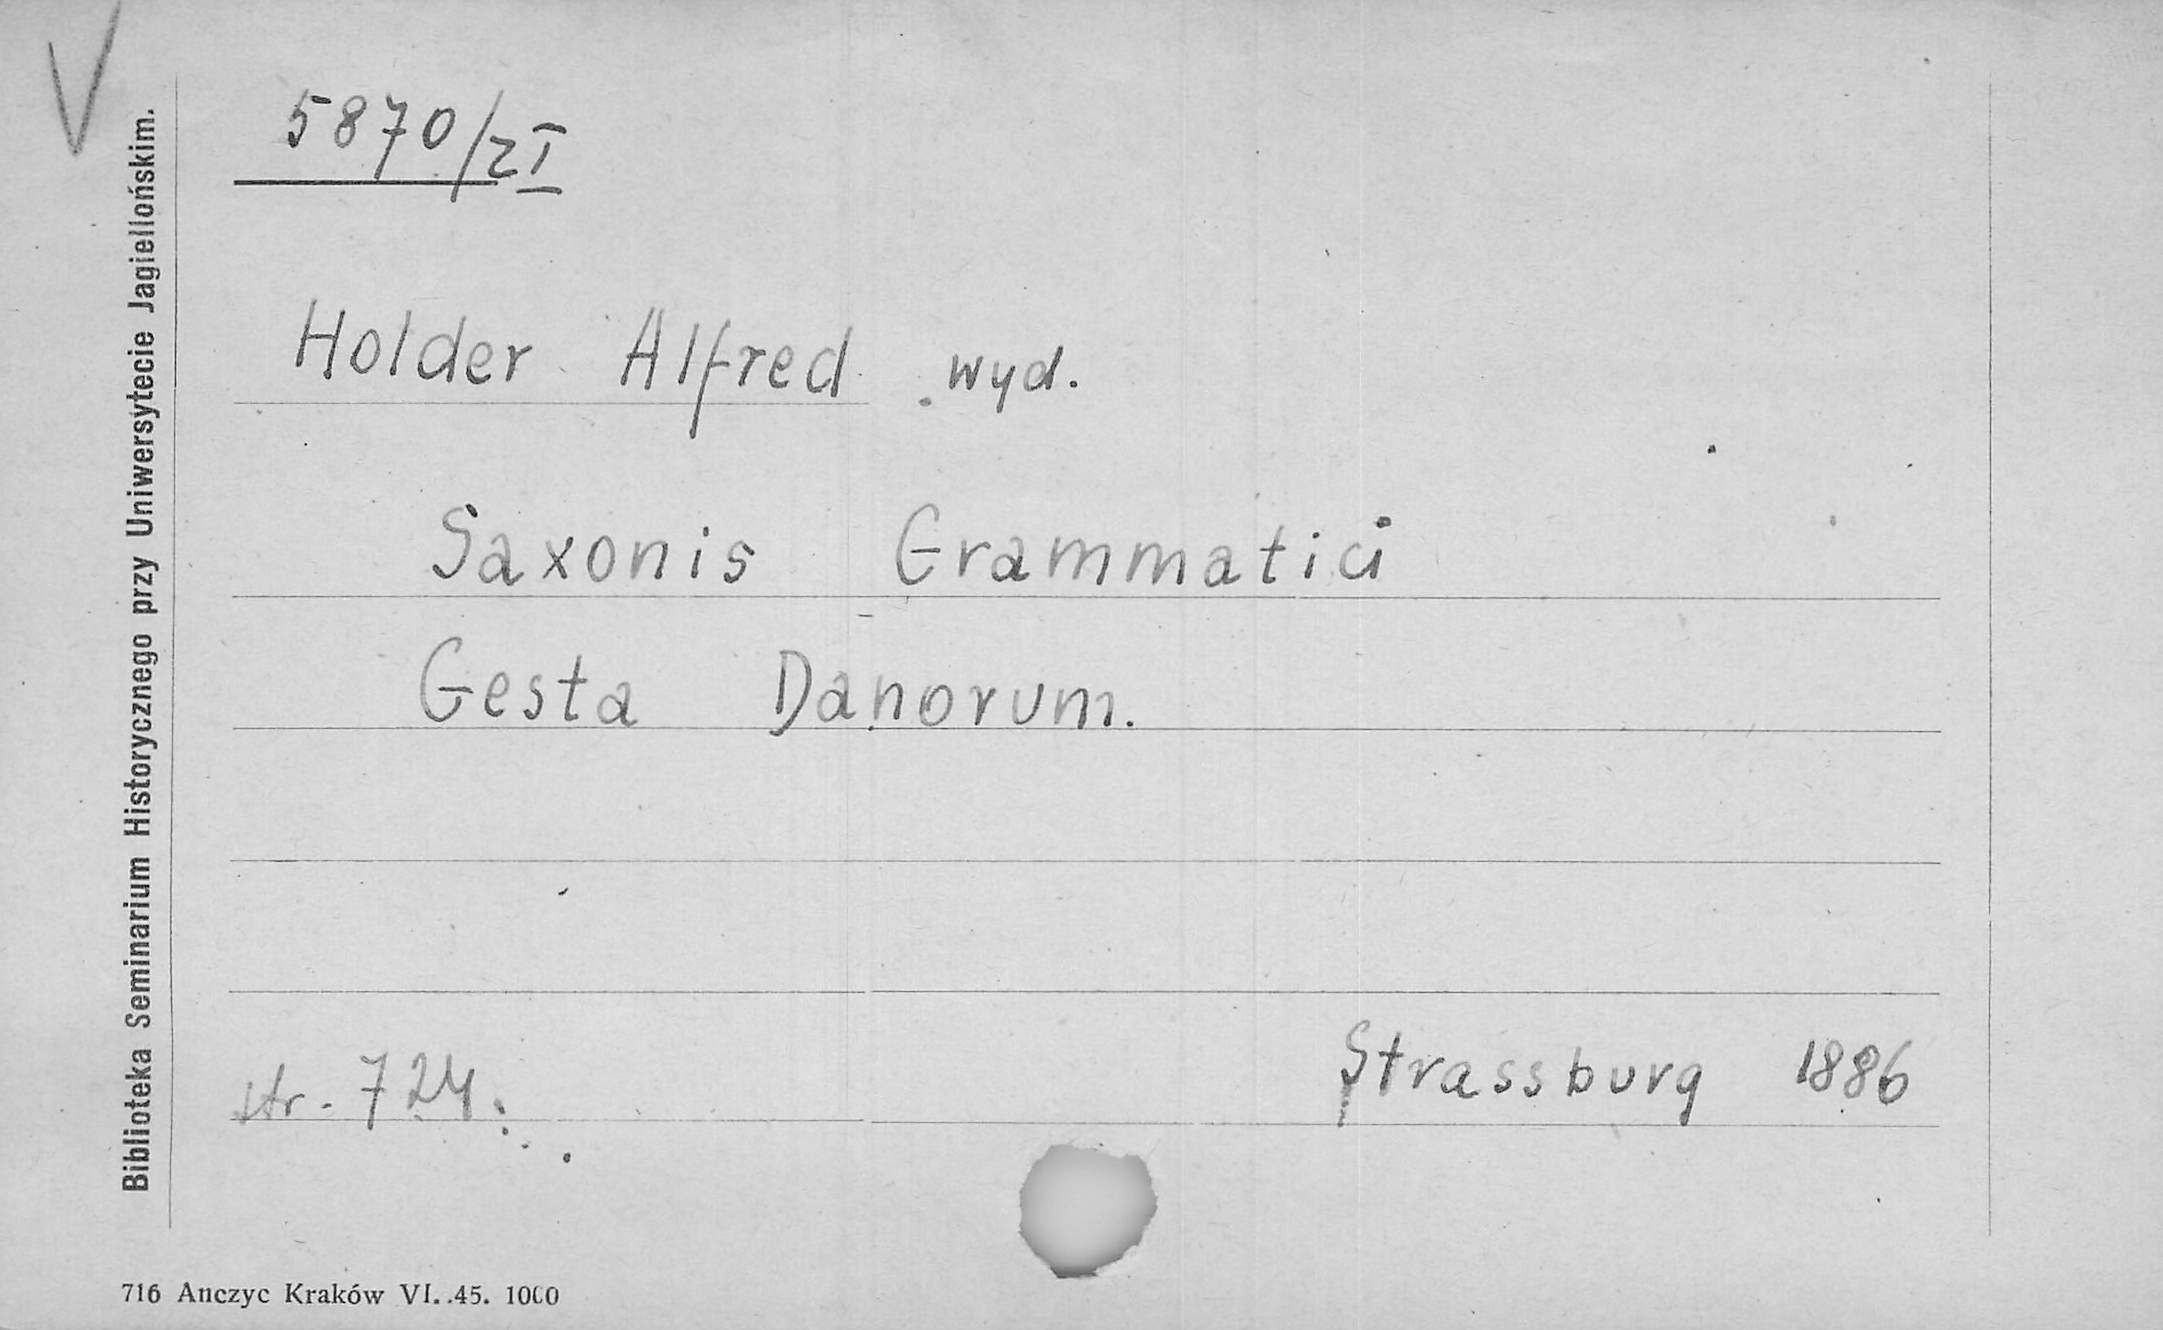 V
5870/z I
Holder Alfred wyd.
Saxonis Grammatici
Gesta Danorum.
str. 724.
Strassburg 1886
Biblioteka Seminarium Historycznego przy Uniwersytecie Jagiellońskim.
716 Anczyc Kraków VI. .45. 1000